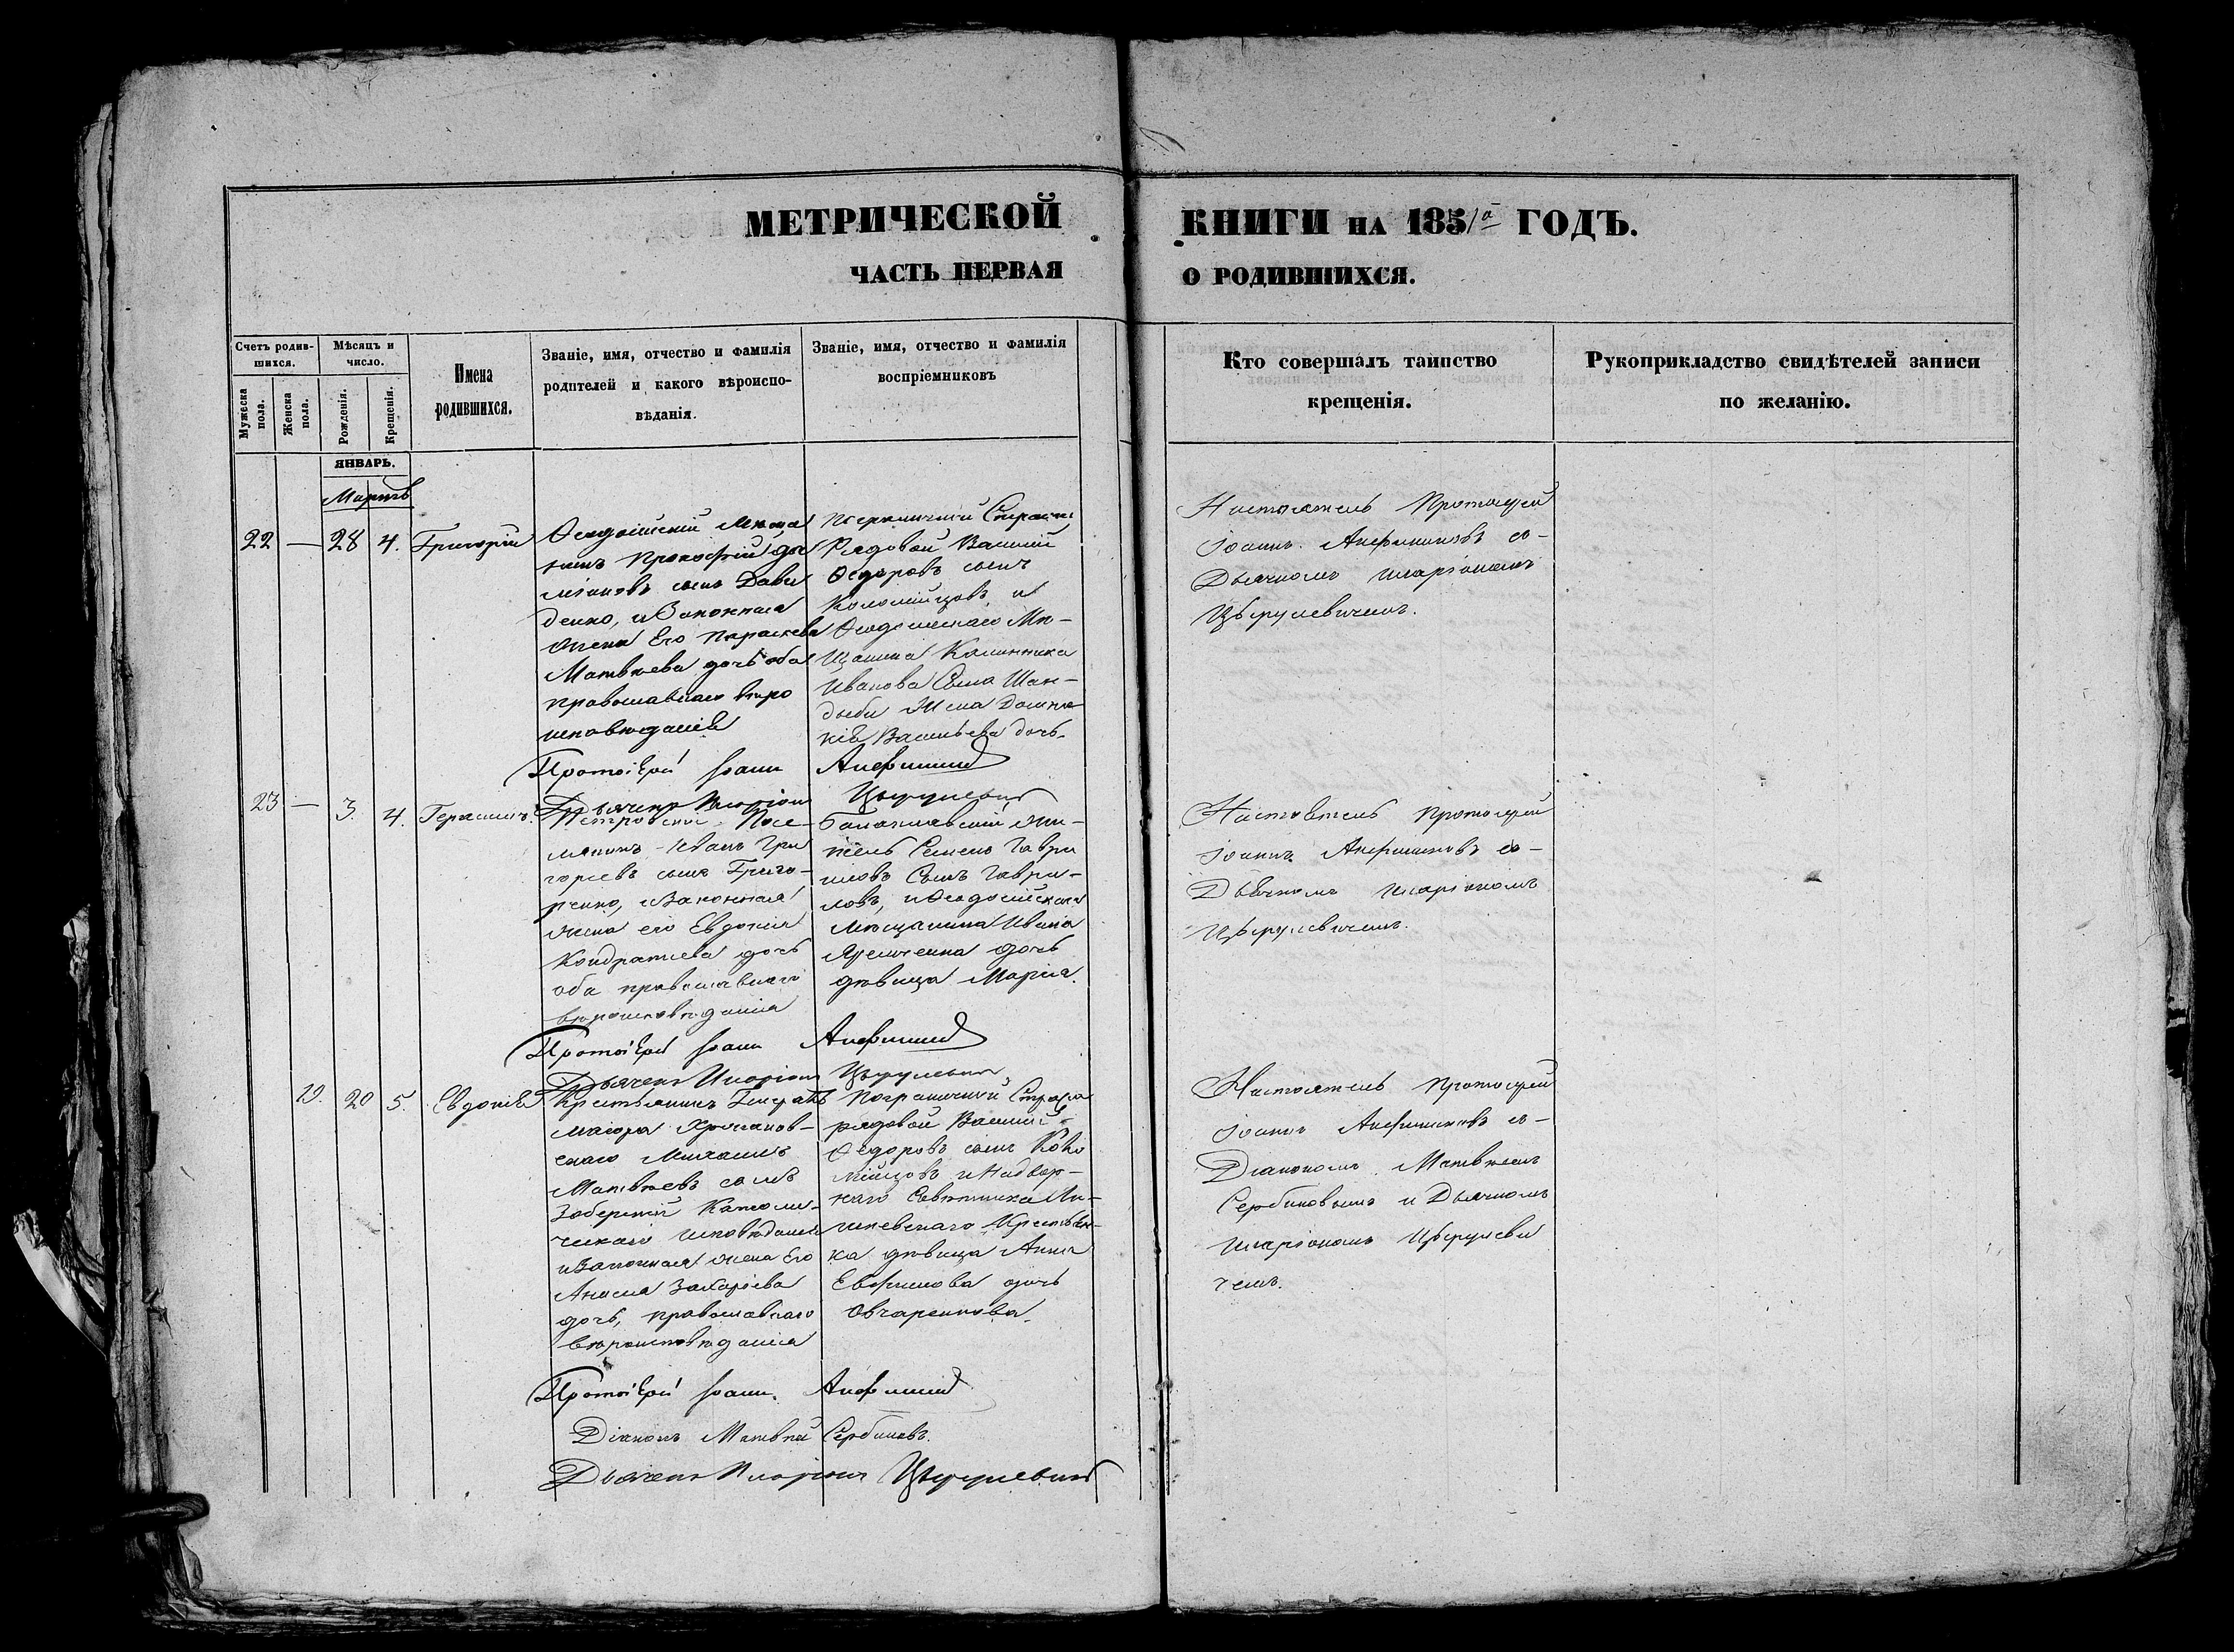 МЕТРИЧЕСКОЙ КНИГИ НА 1851ᵃ ГОДЪ.
ЧАСТЬ ПЕРВАЯ О РОДИВШИХСЯ.
Счетъ родив-
шихся.
Мужеска
пола.
Женска
пола.
Мѣсяцъ и
число.
Рожденія.
Крещенія.
Имена
родившихся.
Званіе, имя, отчество и фамилія
родителей и какого вѣроиспо-
вѣданія.
Званіе, имя, отчество и фамилія
воспріемниковъ
Кто совершалъ таинство
крещенія.
Рукоприкладство свидѣтелей записи
по желанію.
ЯНВАРЬ.
Мартъ
22 — 28 4. Григорій
Ѳеодосійскій Мѣща
нинъ Прокофій
сынъ Дави
денко, и Законная
жена Его Параскева
Матвѣева дочь оба
православнаго вѣро
исповѣданія
Пограничной Стражи
Рядовой Василій
Ѳедоровъ сынъ
Коломійцовъ и
Ѳеодосійскаго Мѣ-
щанина Калинника
Иванова Сына Шан-
дыбы Жена Домни-
кія Васильева дочь.
Настоятель Протоіерей
Іоаннъ Анфимовъ со-
Дьячкомъ Иларіономъ
Цѣрулевичемъ.
Протоіерей Іоаннъ Анфимовъ
Дьячекъ Иларіонъ Цѣрулевичъ
23 — 3. 4. Герасимъ.
Петровскій Посе-
лянинъ Иванъ Гри
горьевъ сынъ Григо-
ренко, и Законная
жена его Евдокія
Кондратьева дочь
оба православнаго
вѣроисповѣданія
Балаклавскій жи-
тель Семенъ Гаври
иловъ Сынъ Гаври-
ловъ, и Ѳеодосійскаго
мѣщанина Ивана
дочь
дѣвица Марія.
Настоятель Протоіерей
Іоаннъ Анфимовъ со-
Дьячкомъ Иларіономъ
Цѣрулевичемъ.
Протоіерей Іоаннъ Анфимовъ
Дьячекъ Иларіонъ Цѣрулевичъ
19. 20 5. Евдокія
Крестьянинъ Генералъ
маіора
скаго Михаилъ
Матвѣевъ сынъ
Католи-
ческаго исповѣданія
и Законная жена Его
Анна Захаріева
дочь, православнаго
вѣроисповѣданія
Пограничной Стражи
рядовой Василій
Ѳедоровъ сынъ Коло
мійцовъ и Надвор-
наго Совѣтника
Крестьян-
ка дѣвица Анна
Евфимова дочь
Овчаренкова.
Настоятель Протоіерей
Іоаннъ Анфимовъ со-
Діакономъ Матвѣемъ
Сербиновымъ и Дьячкомъ
Иларіономъ Цѣрулеви
чемъ.
Протоіерей Іоаннъ Анфимовъ
Діаконъ Матвѣй Сербиновъ.
Дьячекъ Иларіонъ Цѣрулевичъ